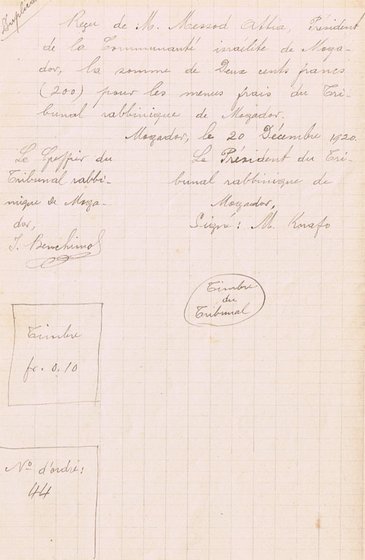 Duplicata
Reçu de M. Messod Attia, Président
de la Communauté israélite de Moga-
dor, la somme de Deux cents francs
(200) pour les menus frais du Tri-
bunal rabbinique de Mogador.
Mogador, le 20 Décembre 1920.
Le Greffier du
Tribunal rabbi-
nique de Moga-
dor,
J. Benchimol
Le Président du Tri-
bunal rabbinique de
Mogador,
Signé : M. Knafo
Timbre
du
Tribunal
Timbre
fr. 0.10
No d'ordre :
44